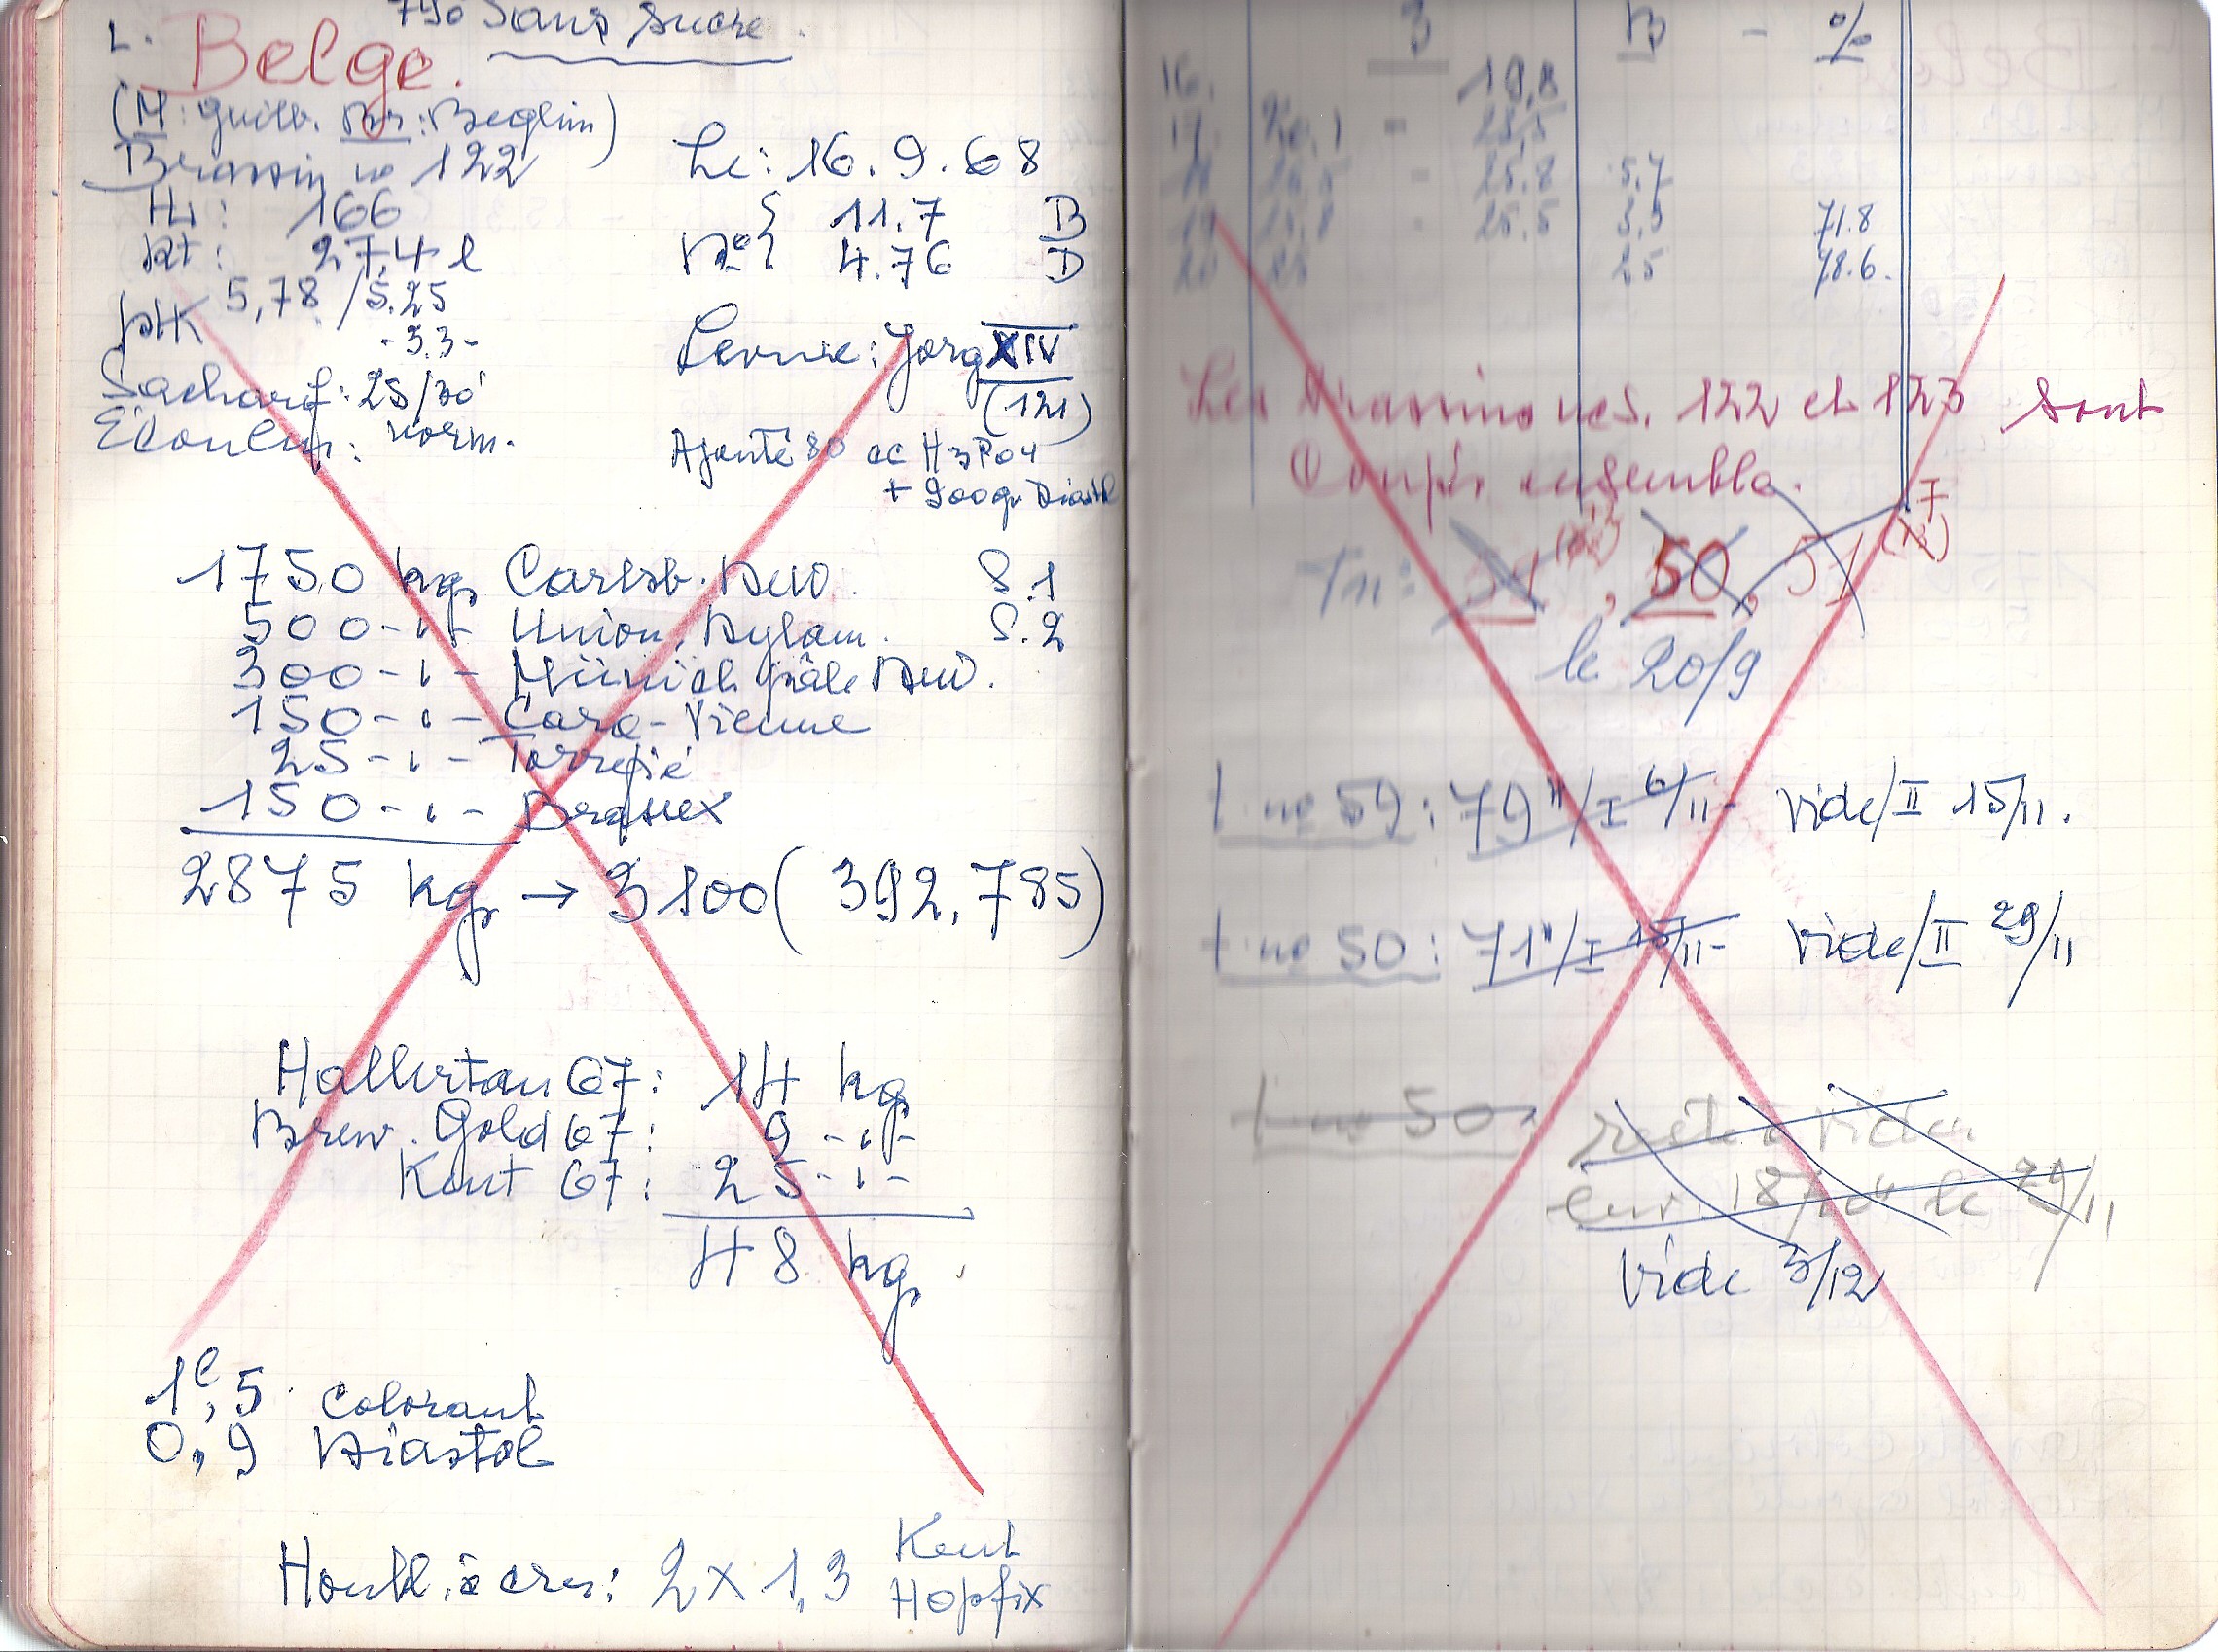 L. 790 Sans sucre.
Belge.
(M: Guilb. Br: Beglin)
Brassin no 122
Le: 16.9.68
Hl: 166
11.7 B
Rt: 27,4 l
4.76 D
pH 5,78 / 5.25
-3.3-
Levure: Jorg XIV
(121)
Sacharif: 25/30'
Ecoulem: norm.
Ajouté 80 cc H3PO4
+ 900gr Diastol
1750 kg Carlsb. S.1
500 -"- Union, S.2
300 -"- Münich pâle
150 -"- Cara-Vienne
25 -"- Torréfié
150 -"- Brumex
2875 kg → 3100 (392,785)
Hallertau 67: 14 kg
Brew. Gold 67: 9 -"-
Kent 67: 25 -"-
48 kg
1l,5 Colorant
0,9 Diastol
Houbl. à cru: 2x1,3 Kent
Hopfix
3 B - %
16. 19,8
17. 20.1 - 23,5
18 26,5 - 25.8 5.7
19 25,8 - 25.5 3,5 71.8
20 25 25 78.6.
Les Brassins nos. 122 et 123 sont
Coupés ensemble.
Tn: 51, 50, 51
le 20/9
t no 59: 79"/I 6/11- Vide/II 15/11.
t no 50: 71"/I 15/11- Vide/II 29/11
t no 50: reste à vider
env. 18 le 29/11
Vide 3/12